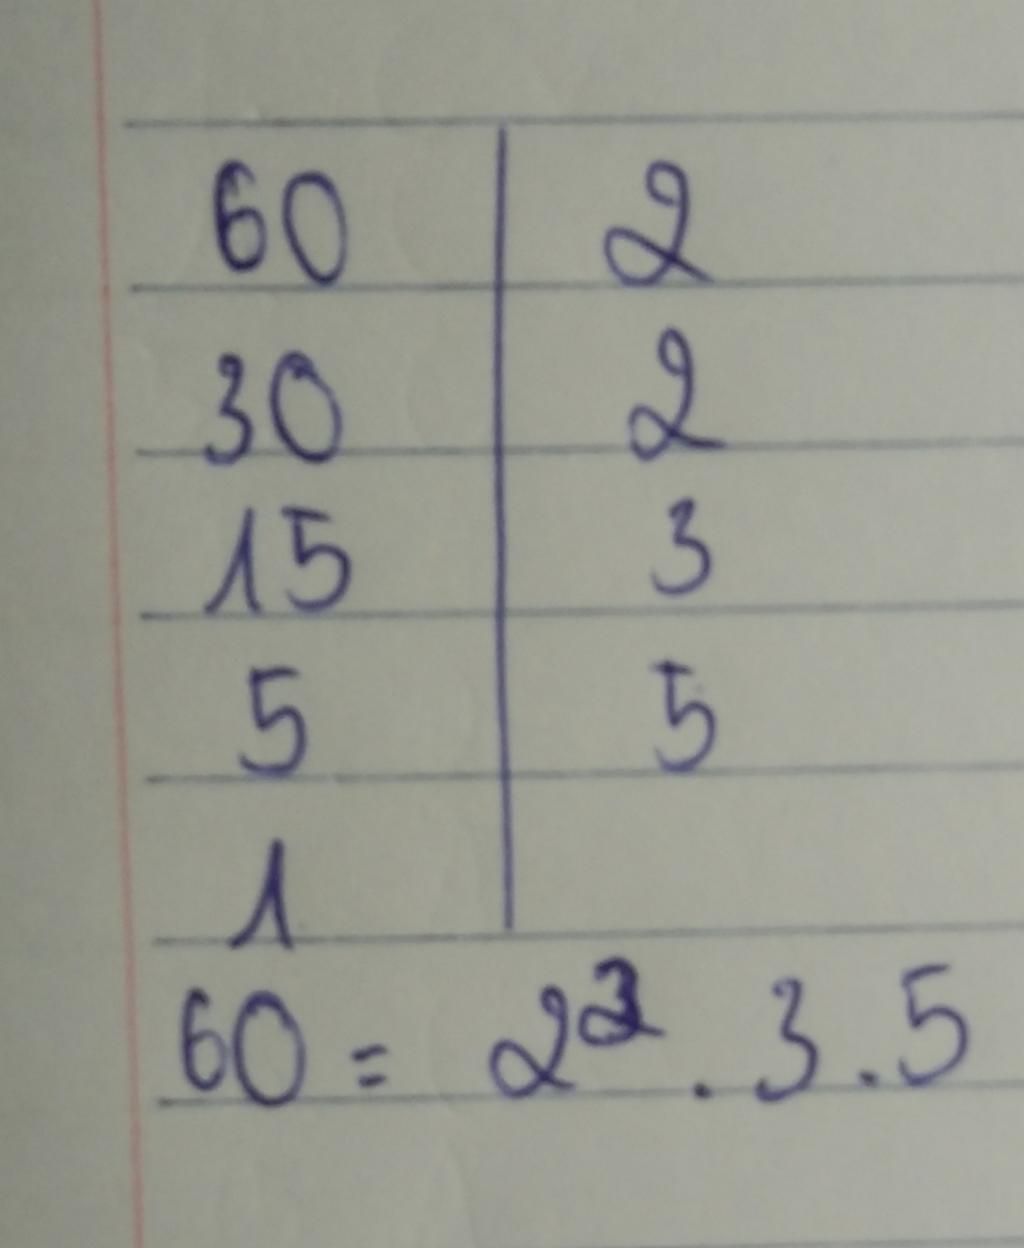 60 | 2
30 | 2
15 | 3
5 | 5
1 |
60 = 2² . 3 . 5